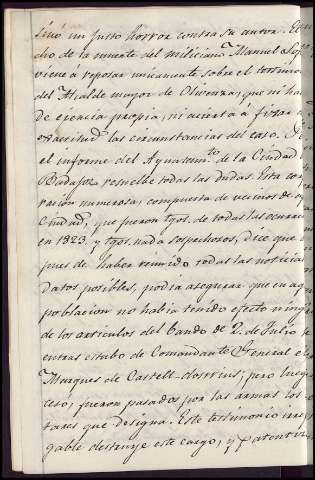 sinó un justo horror contra su autor. El
cho de la muerte del miliciano Manuel Lop
viene á reposar unicamente sobre el testimo
del Alcalde mayor de Olivenza, que ni hab
de ciencia propia, ni acertó á fijar c
exactitud las circunstancias del caso.
el informe del Ayuntam.to de la Ciudad
Badajoz resuelbe todas las dudas. Esta corpo
racion numerosa, compuesta de vecinos de aq
Ciudad, que fueron tgos. de todas las ocurren
en 1823. y tgos. nada sospechosos, dice que
pues de haber reunido todas las noticias
datos posibles, podia asegurar que en aq
poblacion no habia tenido efecto ningu
de los articulos del bando de 2. de Julio
entras estubo de Comandante General el
Marques de Castell-dosrrius; pero luego
cesó, fueron pasados por las armas los
tares que designa. Este testimonio irre
gable destruye este cargo, y patentiz